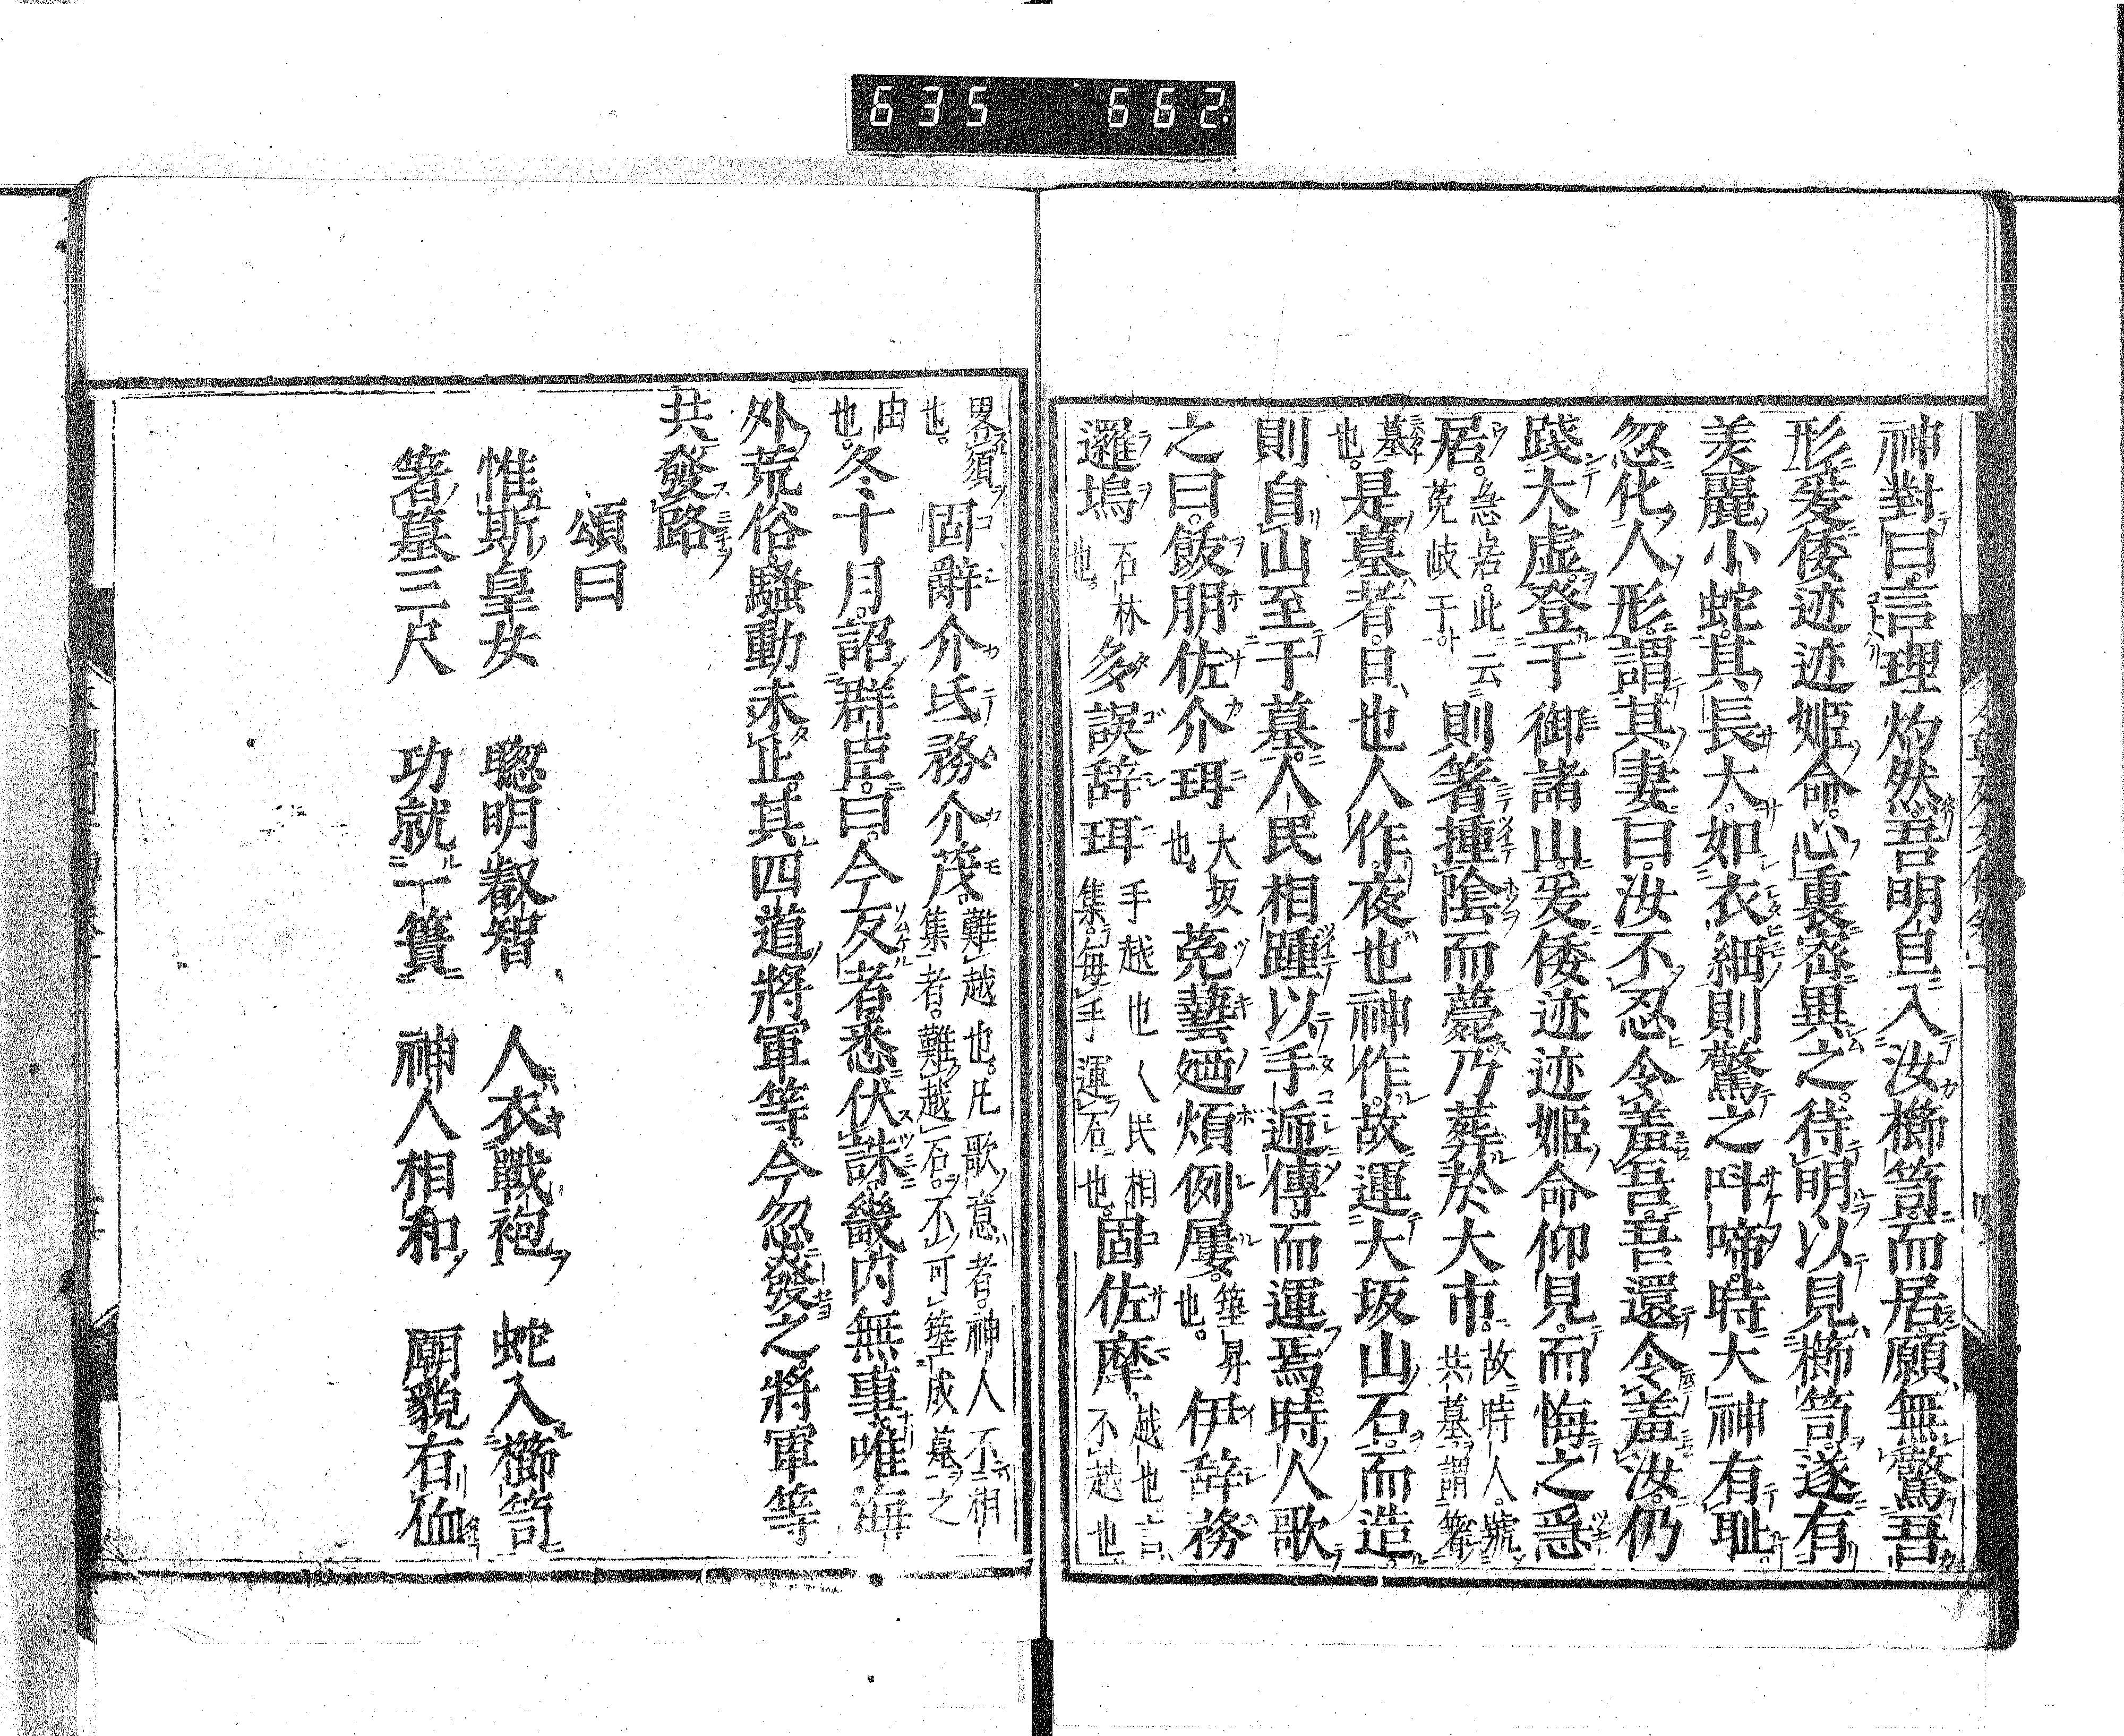 635 662
神對曰言理灼然吾明旦入汝櫛笥而居願無驚吾
形爰倭迹迹姬命心裏密異之待明以見櫛笥遂有
美麗小蛇其長大如衣紐則驚之叫啼時大神有耻
忽化人形謂其妻曰汝不忍令羞吾吾還令羞汝仍
踐大虛登于御諸山爰倭迹迹姬命仰見而悔之急
居急居此云菟岐于則箸撞陰而薨乃葬於大市故時人號共墓謂箸
墓也是墓者日也人作夜也神作故運大坂山石而造
則自山至于墓人民相踵以手逓傳而運焉時人歌
之曰飫朋佐介珥大坂也菟藝廼煩例屢築昇也伊辞務
邏塢石林也多誤辞珥手越也人民相集毎手運石也固佐摩越也言不越也
畧須也固辭介氐務介茂難越也凡歌意者神人不相集者難越石不可築成墓之
由也冬十月詔群臣曰今反者悉伏誅畿内無事唯海
外荒俗騷動未止其四道將軍等今忽發之將軍等
共發路
頌曰
惟斯皇女 聰明叡智 人衣戰袍 蛇入櫛笥
箸墓三尺 功就一簣 神人相和 廟貌有侐